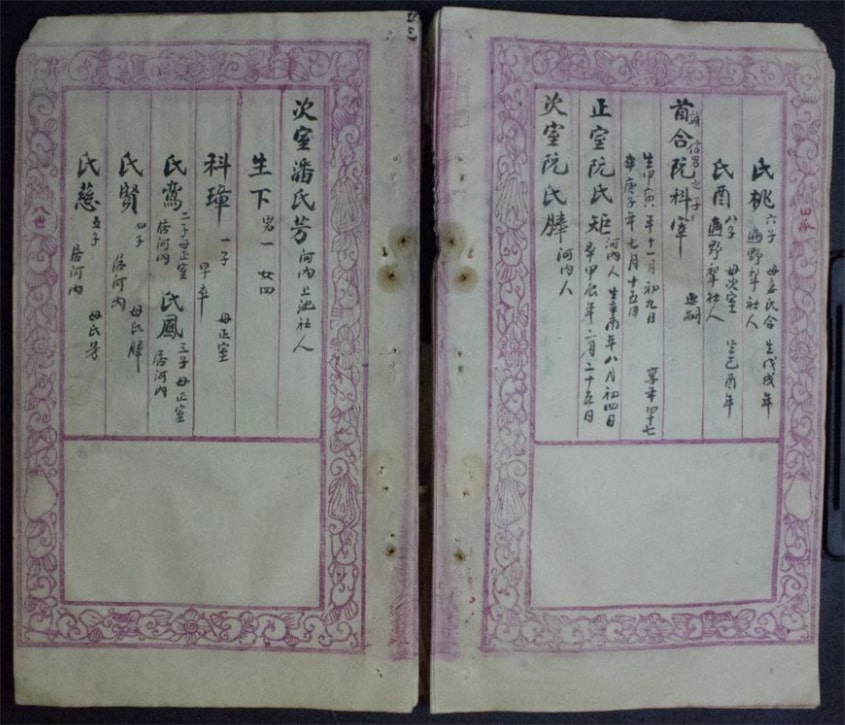 氏桃 六子 母 氏合 生戊戌年
適野犂社人
氏酉 八子 母次室 生己酉年
適野犂社人
首合阮科宰 嗣
信君之子
生甲寅年十一月初九日 寿四十七
卒庚子年七月十五日
正室阮氏矩 河內人 生 年八月初四日
卒甲辰年二月二十五日
次室阮氏 河內人
次室潘氏芳 河內上池社人
生下 男一 女四
科璋 一子 母正室
早卒
氏鸞 二子母正室
居河內
氏鳳 三子母正室
居河內
氏賢 四子 母氏
居河內
氏慈 五子 母氏芳
居河內